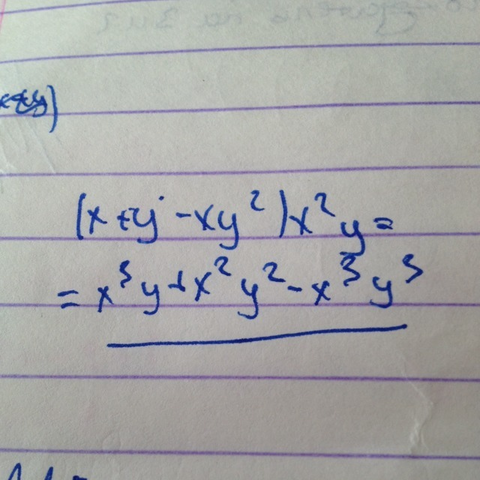 (x+y-xy²)x²y=
=x³y+x²y²-x³y³